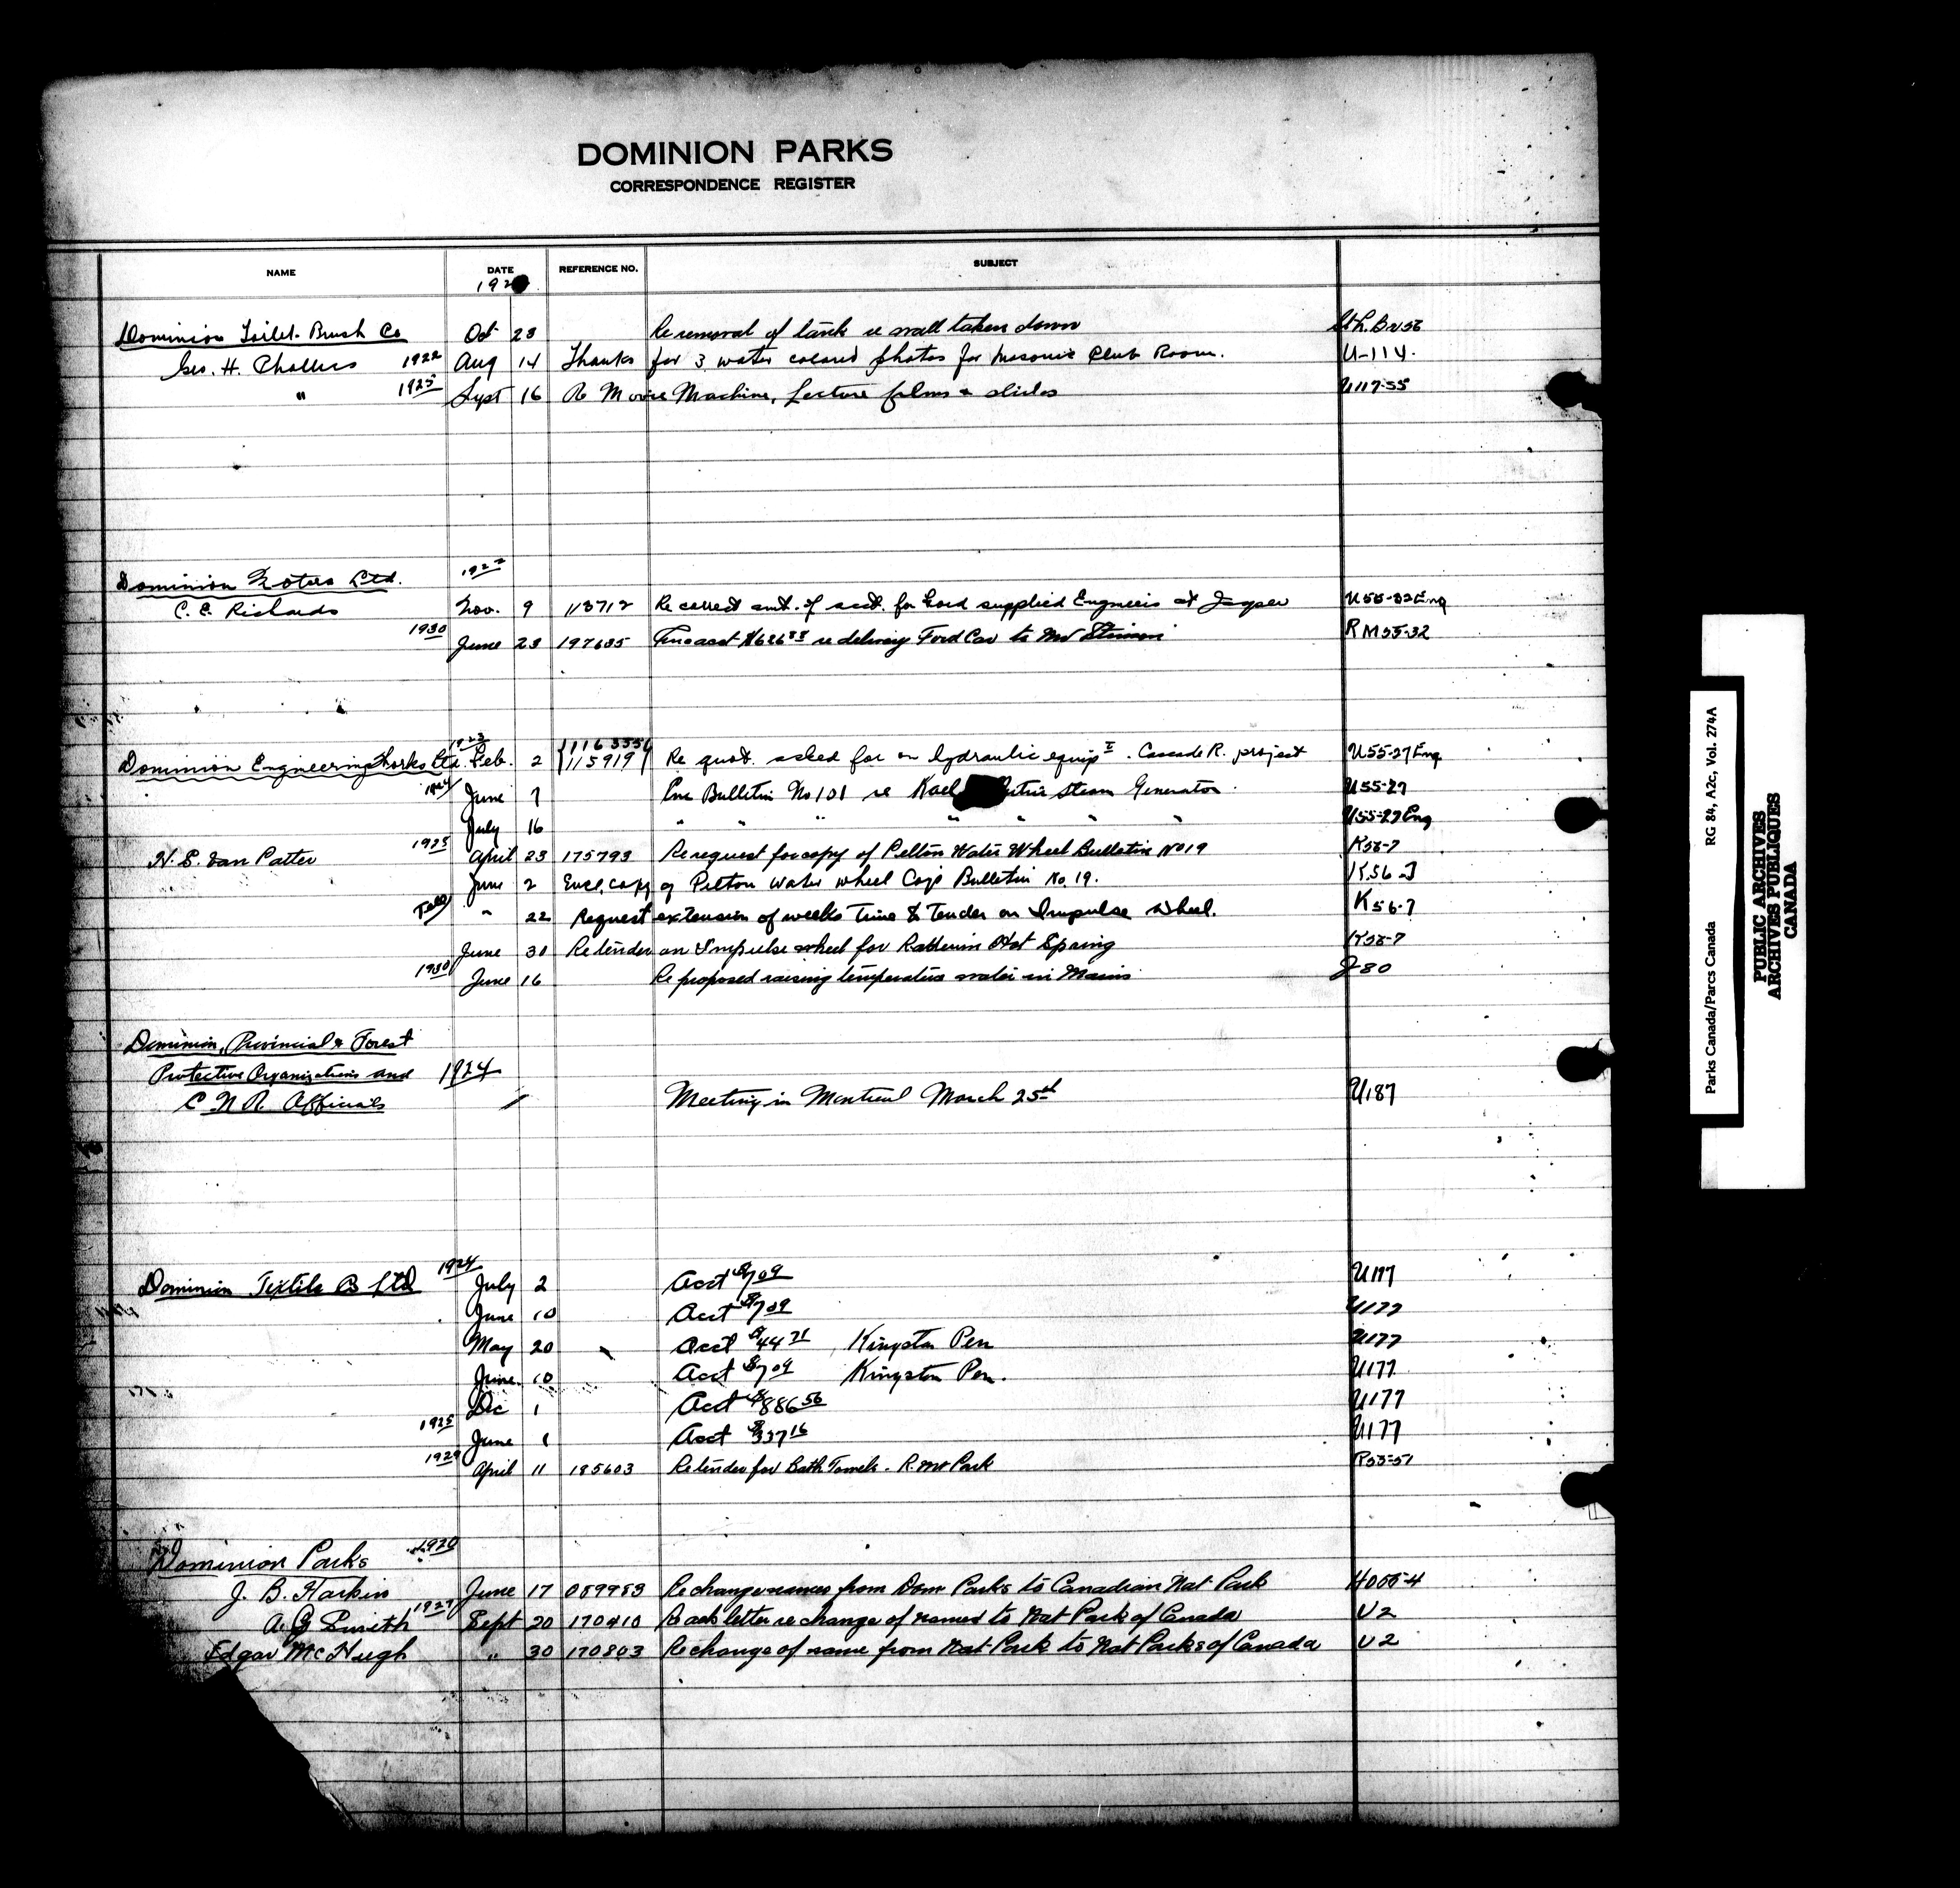 DOMINION PARKS
CORRESPONDENCE REGISTER
NAME DATE REFERENCE NO. SUBJECT
192
Dominion Toilet Brush Co Oct 28 Re removal of tank re wall taken down
Geo. H. 1922 Aug 14 Thanks for 3 water colored photos for Masonic Club Room. U-114.
" 1925 Sept 16 Re Movie Machine, Lecture films & slides U117-55
Dominion Motors Ltd. 1922
C. E. Richards Nov. 9 113712 Re correct amt. of acct. for Ford supplied Engineers at Jasper U55-32 Eng
1930 June 23 197635 re delivery Ford Car to Mr RM55-32
Dominion Engineering Works Ltd. 1923 Feb. 2 {116355 115919} Re quot. asked for on hydraulic equipt. Cascade R. project U55-27 Eng
1924 June 7 Enc Bulletin No 101 re Steam Generator U55-27
July 16 " " " " " " " U55-27 Eng
N. S. Van Patter 1925 April 23 175793 Re request for copy of Pelton Water Wheel Bulletin No 19 K56-7
June 2 Encl. copy of Pelton Water Wheel Co's Bulletin No. 19. K56-7
" 22 Request extension of weeks time & Tender on Impulse wheel. K56-7
June 30 Re tender on Impulse wheel for Radium Hot Spring K56-7
1930 June 16 Re proposed raising temperature water in Mains J-80
Dominion, Provincial & Forest
Protective Organizations and 1924
C N R Officials " Meeting in Montreal March 25th U187
Dominion Textile Co Ltd 1924 July 2 Acct $7.09 U177
June 10 Acct $7.09 U177
May 20 Acct $44.71 Kingston Pen U177
June 10 Acct $7.09 Kingston Pen. U177
Dec 1 Acct $886.56 U177
1925 June 1 Acct $337.16 U177
1929 April 11 185603 Re tender for Bath Towels - R. Mt Park R53-51
Dominion Parks 1920
J. B. Harkin June 17 059953 Re change names from Dom Parks to Canadian Nat Park
A. G. Smith 1927 Sept 20 170410 Re ack letter re change of names to Nat Park of Canada U2
Edgar McHugh " 30 170803 Re change of name from Nat Park to Nat Parks of Canada U2
Parks Canada/Parcs Canada RG 84, A2c, Vol. 274A
PUBLIC ARCHIVES
ARCHIVES PUBLIQUES
CANADA